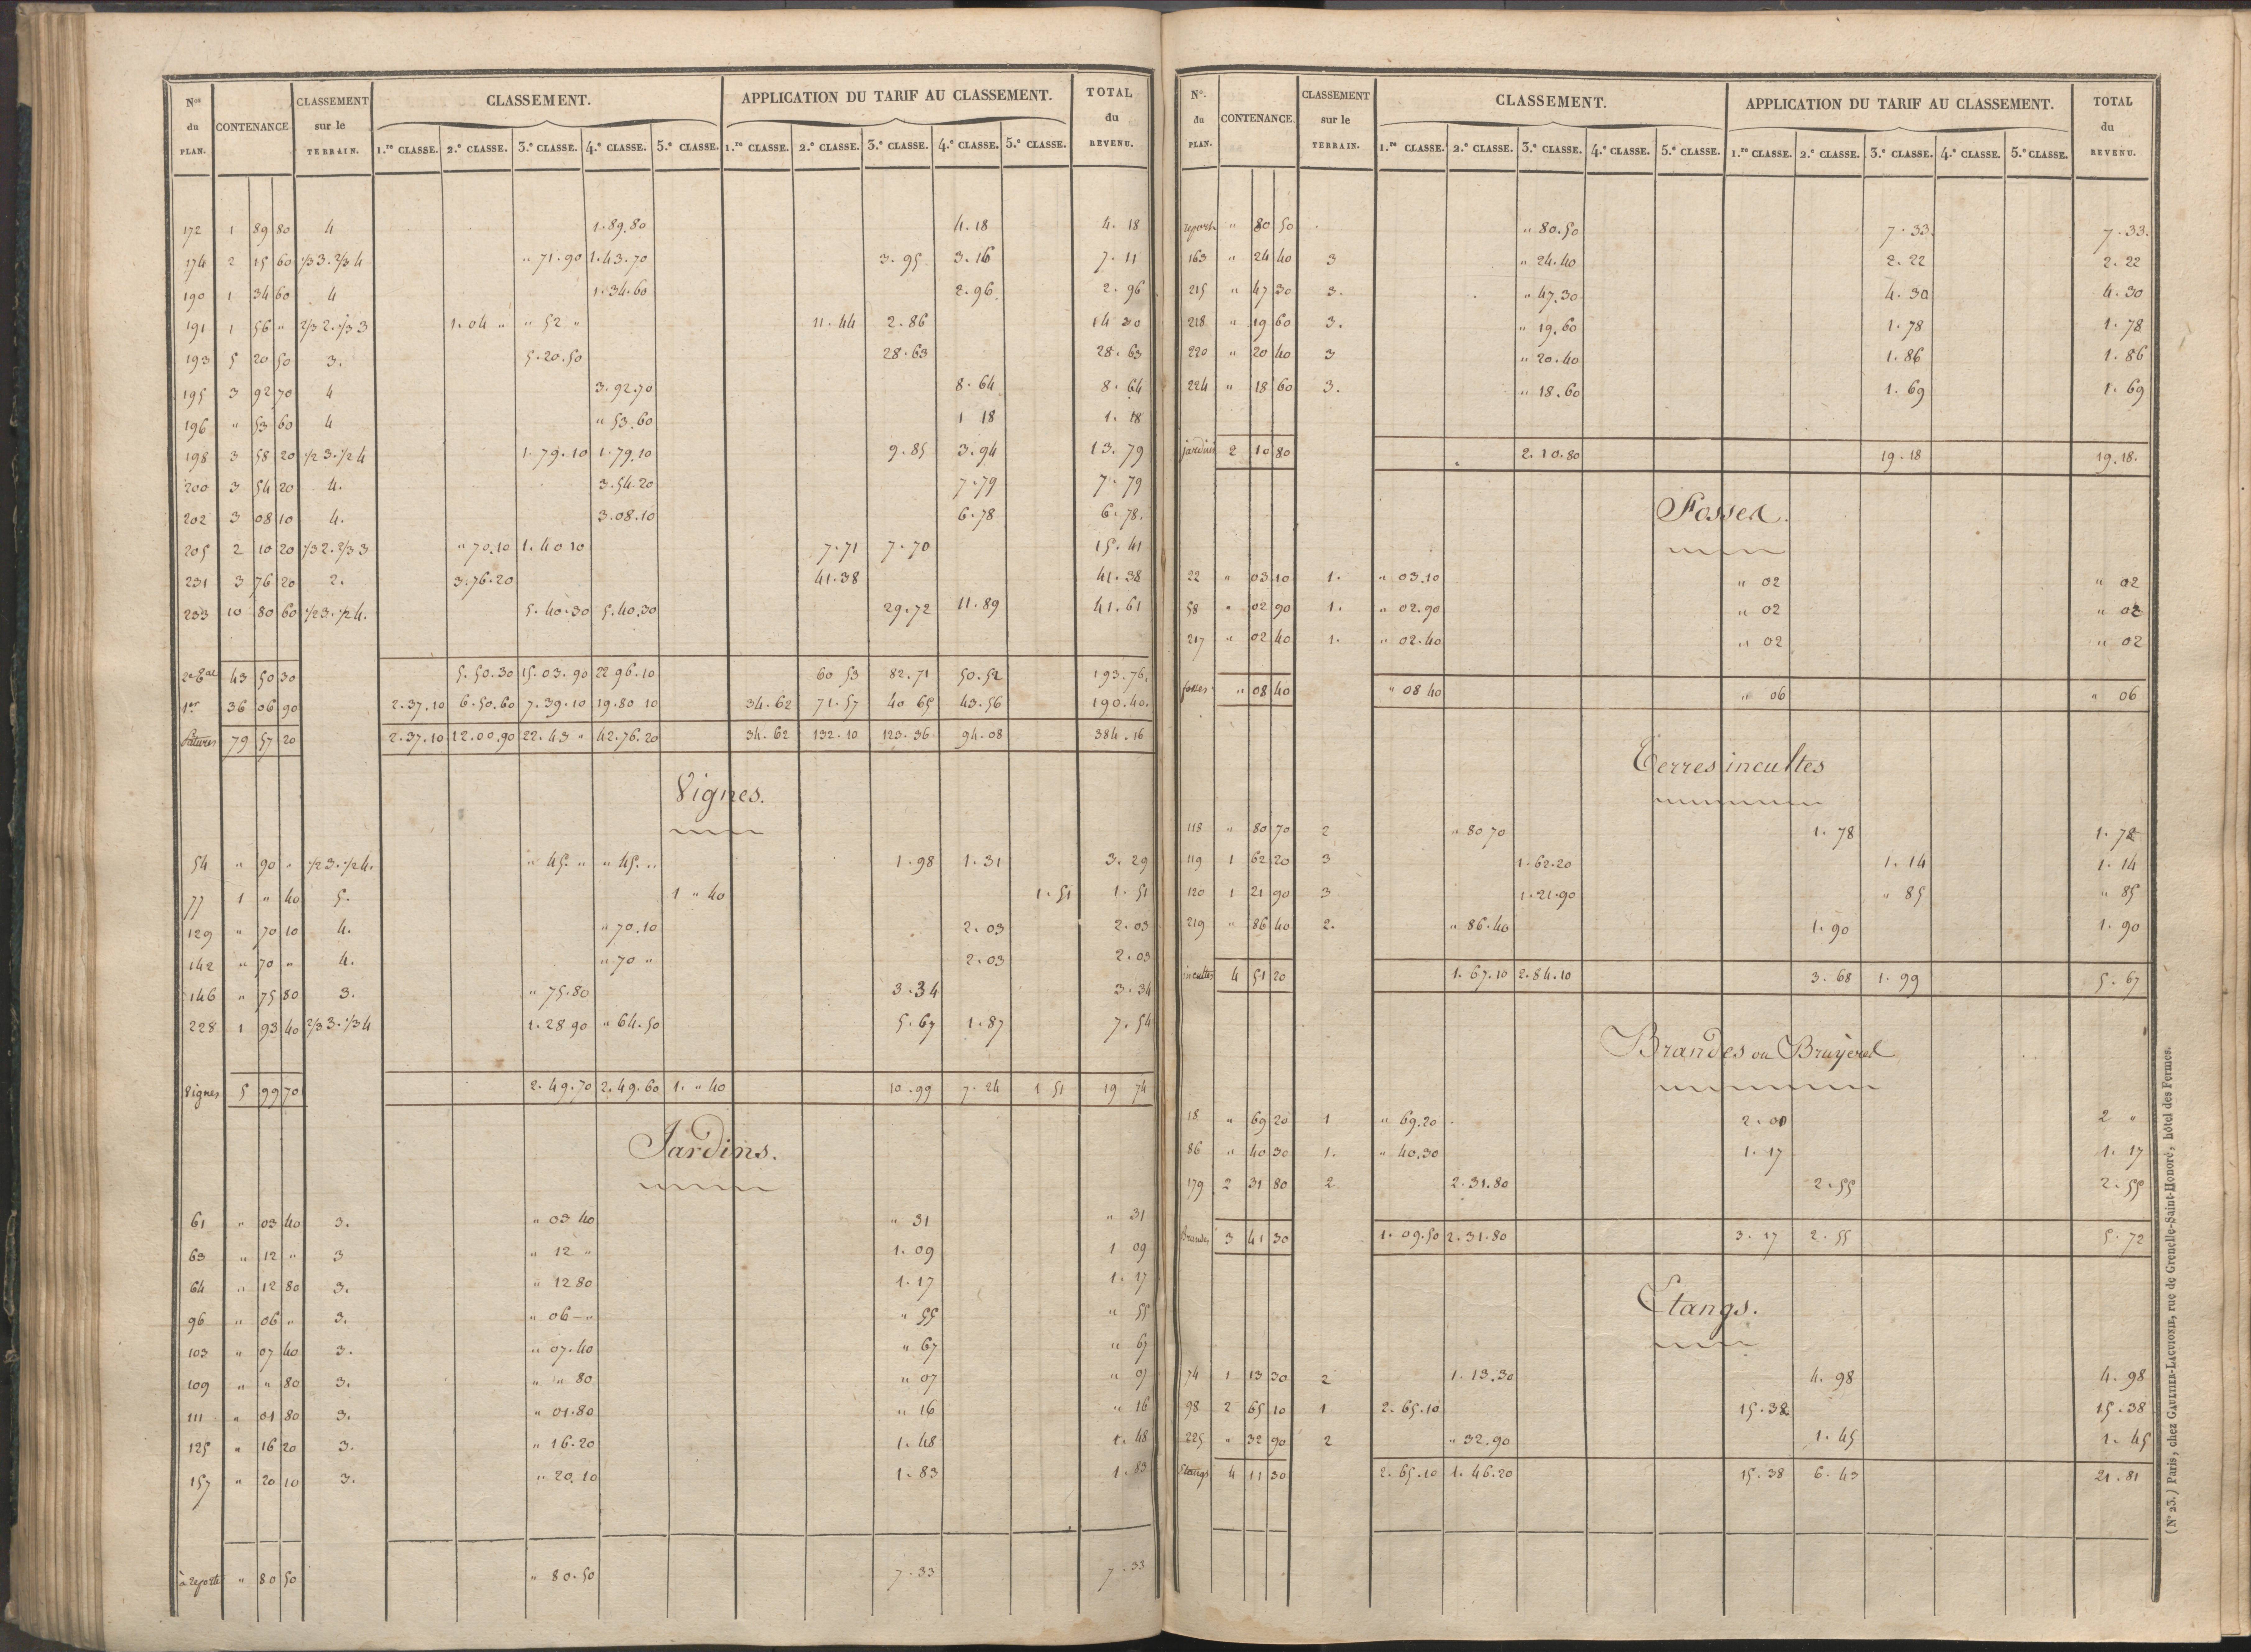 Nos du PLAN. CONTENANCE CLASSEMENT sur le TERRAIN. CLASSEMENT. APPLICATION DU TARIF AU CLASSEMENT. TOTAL du REVENU.
1.re CLASSE. 2.e CLASSE. 3.e CLASSE. 4.e CLASSE. 5.e CLASSE. 1.re CLASSE. 2.e CLASSE. 3.e CLASSE. 4.e CLASSE. 5.e CLASSE.
172 1 89 80 4 1.89.80 4.18 4.18
174 2 15 60 1/3 3. 2/3 4 " 71.90 1.43.70 3.95 3.16 7.11
190 1 34 60 4 1.34.60 2.96 2.96
191 1 56 " 2/3 2. 1/3 3 1.04 " " 52 " 11.44 2.86 14 30
193 5 20 50 3. 5.20.50 28.63 28.63
195 3 92 70 4 3.92.70 8.64 8.64
196 " 53 60 4 " 53.60 1 18 1.18
198 3 58 20 1/2 3. 1/2 4 1.79.10 1.79.10 9.85 3.94 13.79
200 3 54 20 4. 3.54.20 7.79 7.79
202 3 08 10 4. 3.08.10 6.78 6.78.
205 2 10 20 1/3 2. 2/3 3 " 70.10 1.40 10 7.71 7.70 15.41
231 3 76 20 2. 3.76.20 41.38 41.38
233 10 80 60 1/2 3. 1/2 4. 5.40.30 5.40.30 29.72 11.89 41.61
43 50 30 5.50.30 15.03.90 22 96.10 60 53 82.71 50.52 193.76.
1er 36 06 90 2.37.10 6.50.60 7.39.10 19.80 10 34.62 71.57 40 65 43.56 190.40.
Patures 79 57 20 2.37.10 12.00.90 22.43 " 42.76.20 34.62 132.10 123.36 94.08 384.16
Vignes.
54 " 90 " 1/2 3. 1/2 4. " 45. " " 45. " 1.98 1.31 3.29
77 1 " 40 5. 1 " 40 1.51 1.51
129 " 70 10 4. " 70.10 2.03 2.03
142 " 70 " 4. " 70 " 2.03 2.03
146 " 75 80 3. " 75.80 3.34 3.34
228 1 93 40 2/3 3. 1/3 4 1.28 90 " 64.50 5.67 1.87 7.54
Vignes 5 99 70 2.49.70 2.49.60 1. " 40 10.99 7.24 1 51 19 74
Jardins.
61 " 03 40 3. " 03 40 " 31 " 31
63 " 12 " 3 " 12 " 1.09 1 09
64 " 12 80 3. " 12 80 1.17 1.17
96 " 06 " 3. " 06 - " " 55 " 55
103 " 07 40 3. " 07.40 " 67 " 67
109 " " 80 3. " " 80 " 07 " 07
111 " 01 80 3. " 01.80 " 16 " 16
125 " 16 20 3. " 16.20 1.48 1.48
157 " 20 10 3. " 20.10 1.83 1.83
à reporter " 80 50 " 80.50 7.33 7.33
No. du PLAN. CONTENANCE. CLASSEMENT sur le TERRAIN. CLASSEMENT. APPLICATION DU TARIF AU CLASSEMENT. TOTAL du REVENU.
1.re CLASSE. 2.e CLASSE. 3.e CLASSE. 4.e CLASSE. 5.e CLASSE. 1.re CLASSE. 2.e CLASSE. 3.e CLASSE. 4.e CLASSE. 5.e CLASSE.
report " 80 50 " 80.50 7.33. 7.33.
163 " 24 40 3 " 24.40 2.22 2.22
215 " 47 30 3. " 47.30 4.30 4.30
218 " 19 60 3. " 19.60 1.78 1.78
220 " 20 40 3 " 20.40 1.86 1.86
224 " 18 60 3. " 18.60 1.69 1.69
jardins 2 10 80 2.10.80 19.18 19.18.
Fosses.
22 " 03 10 1. " 03.10 " 02 " 02
58 " 02 90 1. " 02.90 " 02 " 02
217 " 02 40 1. " 02.40 " 02 " 02
fosses " 08 40 " 08 40 " 06 " 06
Terres incultes
118 " 80 70 2 " 80 70 1.78 1.78
119 1 62 20 3 1.62.20 1.14 1.14
120 1 21 90 3 1.21.90 " 85 " 85
219 " 86 40 2. " 86.40 1.90 1.90
incultes 4 51 20 1.67.10 2.84.10 3.68 1.99 5.67
Brandes ou Bruyeres
18 " 69 20 1 " 69.20 2.00 2 "
86 " 40 30 1. " 40.30 1.17 1.17
179 2 31 80 2 2.31.80 2.55 2.55
Brandes 3 41 30 1.09.50 2.31.80 3.17 2.55 5.72
Etangs.
74 1 13 30 2 1.13.30 4.98 4.98
98 2 65 10 1 2.65.10 15.38 15.38
225 " 32 90 2 " 32.90 1.45 1.45
Etangs 4 11 30 2.65.10 1.46.20 15.38 6.43 21.81
(No 23.) Paris, chez GAULTIER-LAGUIONIE, rue de Grenelle-Saint-Honoré, hôtel des Fermes.